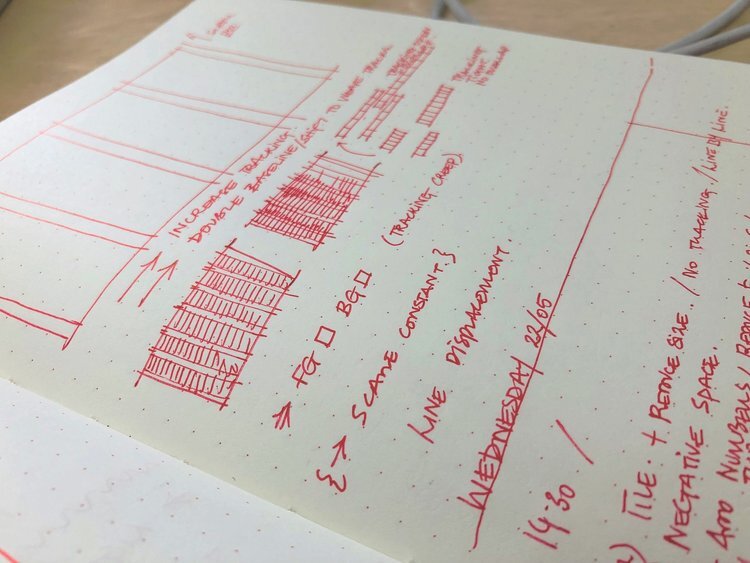 INCREASE TRACKING/
DOUBLE BASELINE/SHIFT TO
TRACKING
(TRACKING CREEP)
⇒ FG □ BG □
{→ SCALE CONSTANT}
LINE DISPLACEMENT.
WEDNESDAY 22/05
14.30 /
TILE. + REDUCE SIZE. / NO TRACKING / LINE BY LINE.
NEGATIVE SPACE.
ADD NUMBERS / REDUCE